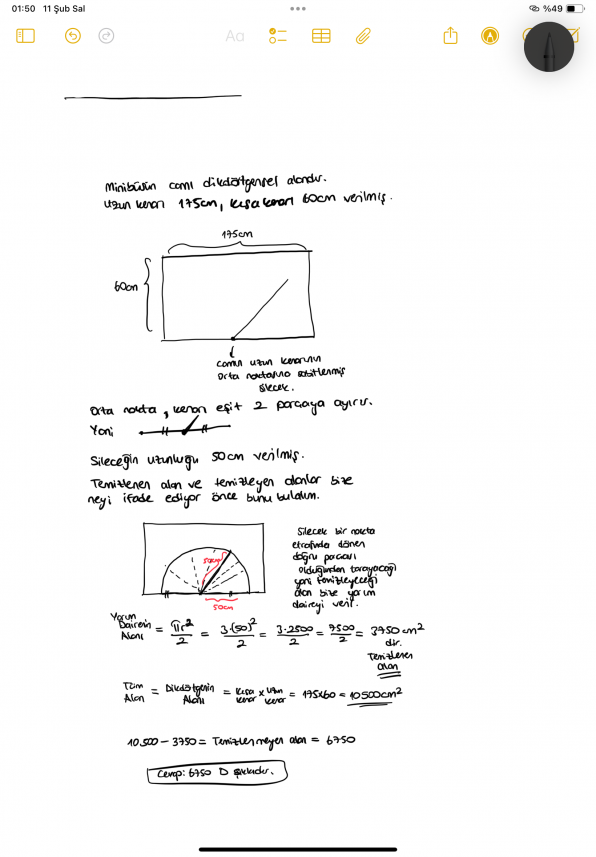 01:50 11 Şub Sal
%49
Aa
Minibüsün camı dikdörtgensel alandır.
Uzun kenarı 175cm, kısa kenarı 60cm verilmiş.
175cm
60cm
camın uzun kenarının
orta noktasına sabitlenmiş
silecek.
Orta nokta, kenarı eşit 2 parçaya ayırır.
Yani
Sileceğin uzunluğu 50cm verilmiş.
Temizlenen alan ve temizleyen alanlar bize
neyi ifade ediyor önce bunu bulalım.
50cm
50cm
Silecek bir nokta
etrafında dönen
doğru parçası
olduğundan tarayacağı
yani temizleyeceği
alan bize yarım
daireyi verir.
Yarım
Dairenin
Alanı = πr²/2 = 3.(50)²/2 = 3.2500/2 = 7500/2 = 3750cm²
dir.
Temizlenen
alan
Tüm Alan = Dikdörtgenin Alanı = kısa kenar x uzun kenar = 175x60 = 10500cm²
10.500 - 3750 = Temizlenmeyen alan = 6750
Cevap: 6750 D şıkkıdır.